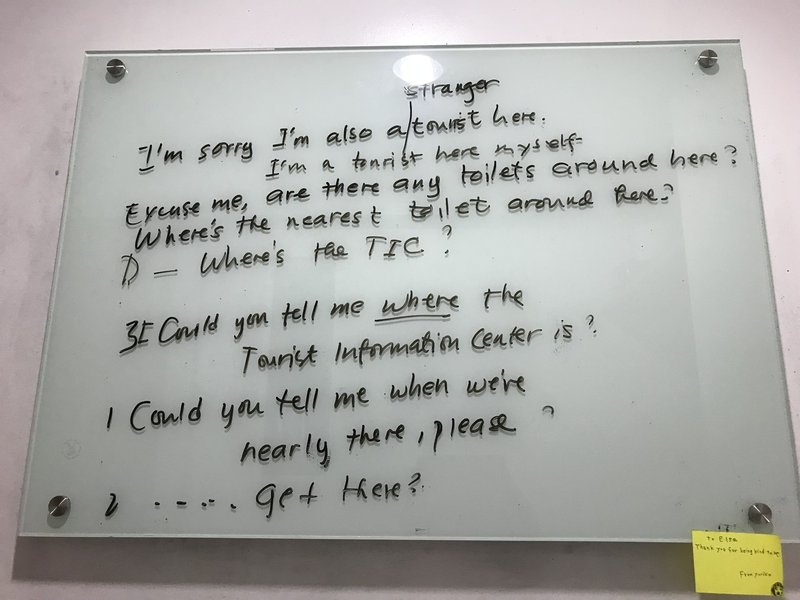 stranger
I'm sorry I'm also a/tourist here.
I'm a tourist here myself
Excuse me, are there any toilets around here?
Where's the nearest toilet around here?
D — Where's the TIC?
3I Could you tell me where the
Tourist Information Center is?
1 Could you tell me when we're
nearly there, please?
2 ..... get there?
To Elsa
Thank you for being kind to me
From